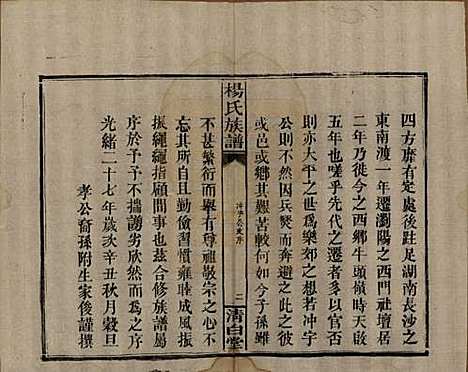 四方靡有定處後跬足湖南長沙之
東南渡一年遷瀏陽之西門社壇居
二年乃徙今之西鄉牛頭嶺時天啟
五年也嗟乎先代之遷者多以官否
則亦大平之世爲樂郊之想若冲宇
公則不然因兵燹而奔避之此之
或邑或鄉其艱苦較何如分子孫雖
楊氏族譜
二
清白堂
不甚繁衍而有尊祖敬宗之心不
忘其所自且勤儉習慣雍睦成風振
振繩繩指顧間事也茲合修族譜屬
序於予予不揣謭劣樂而爲之序
光緒二十七年歲次辛丑秋月穀旦
孝公裔孫附生家後謹撰